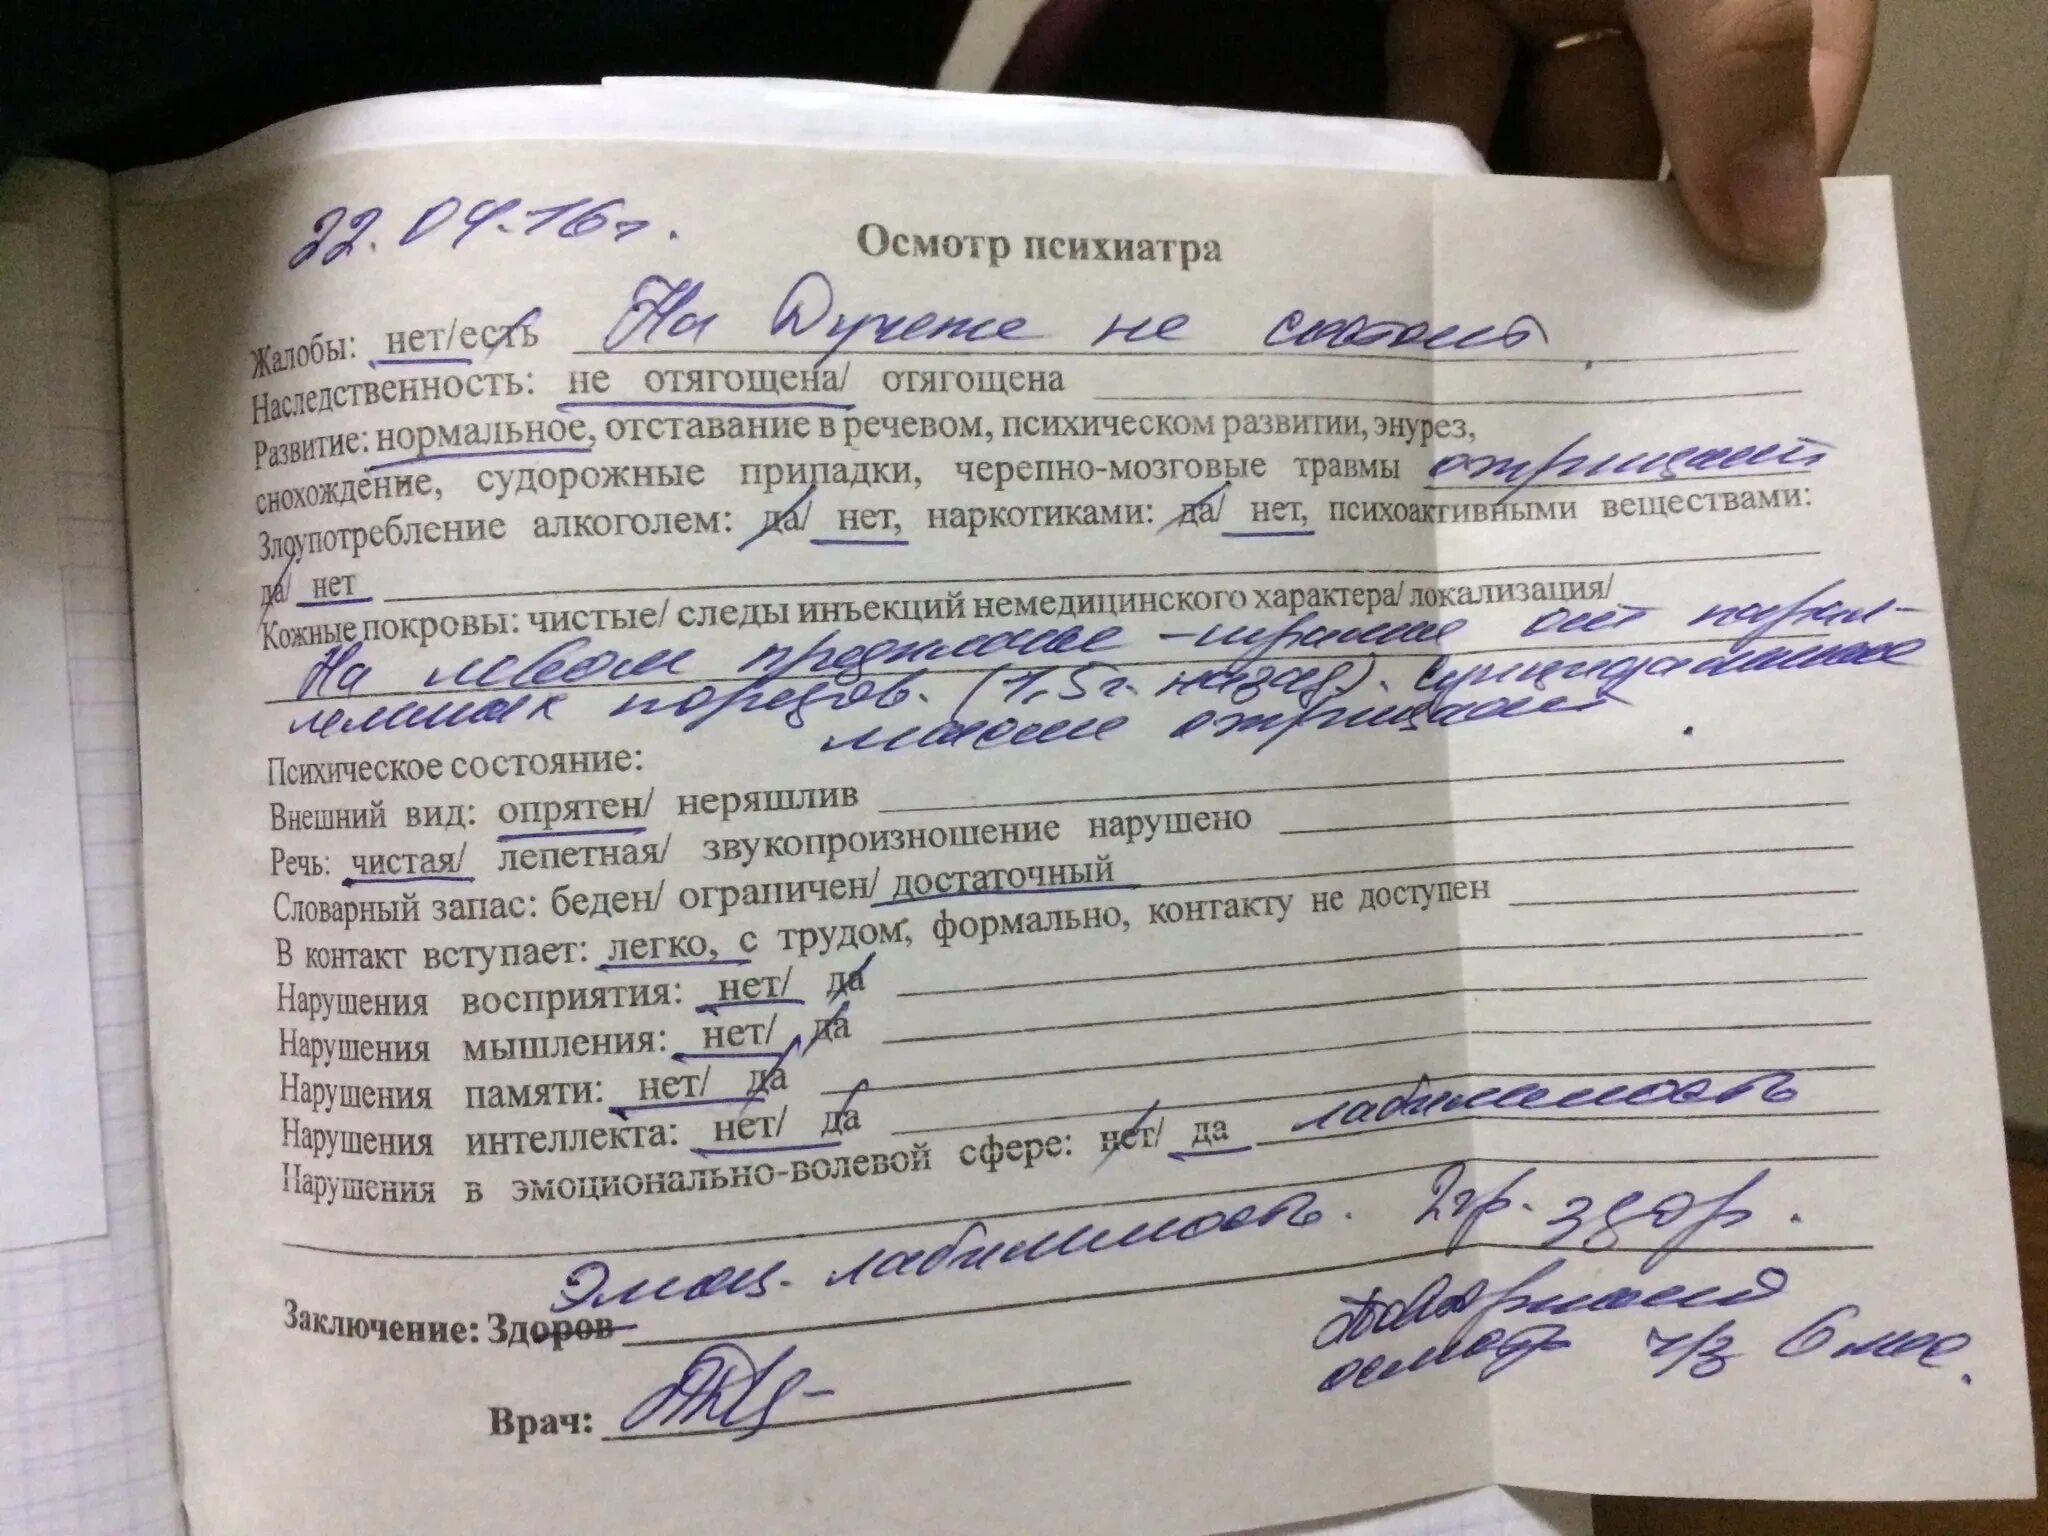 22.04.16г.
Осмотр психиатра
Жалобы: нет/есть На Дучете не состоит.
Наследственность: не отягощена/ отягощена
Развитие: нормальное, отставание в речевом, психическом развитии, энурез,
снохождение, судорожные припадки, черепно-мозговые травмы отрицает
Злоупотребление алкоголем: да/ нет, наркотиками: да/ нет, психоактивными веществами:
да/ нет
Кожные покровы: чистые/ следы инъекций немедицинского характера/ локализация/
На левом предплечье - шрамы от парал-
лельных порезов. (1,5 г. назад). Суицидальные
мысли отрицает.
Психическое состояние:
Внешний вид: опрятен/ неряшлив
Речь: чистая/ лепетная/ звукопроизношение нарушено
Словарный запас: беден/ ограничен/ достаточный
В контакт вступает: легко, с трудом, формально, контакту не доступен
Нарушения восприятия: нет/ да
Нарушения мышления: нет/ да
Нарушения памяти: нет/ да
Нарушения интеллекта: нет/ да
Нарушения в эмоционально-волевой сфере: нет/ да лабильность
Эмоц. лабильность. 2 гр. здор.
Заключение: Здоров
Повторный
осмотр ч/з 6 мес.
Врач: